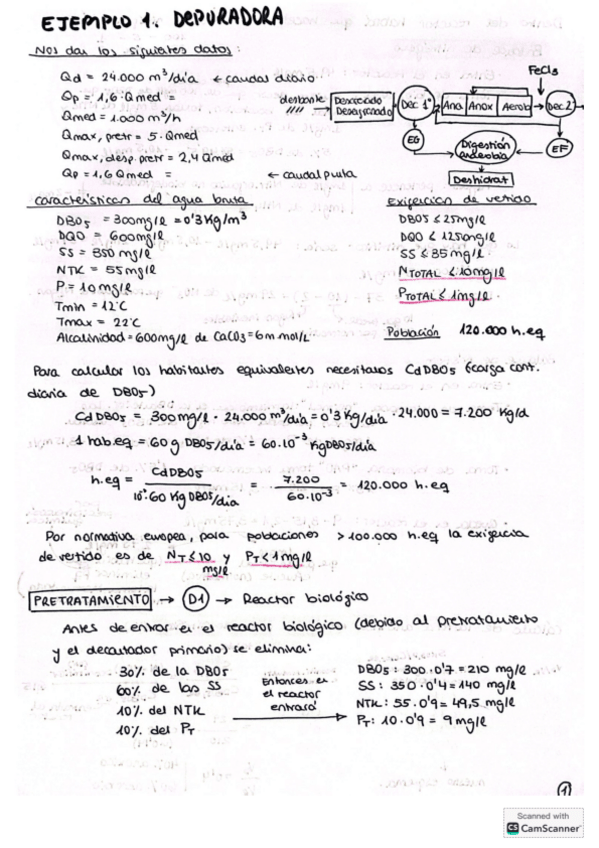 EJEMPLO 1. DEPURADORA
Nos dan los siguientes datos:
Qd = 24.000 m³/día ← caudal diario
Qp = 1,6·Qmed =
Qmed = 1.000 m³/h
Qmax, pretr = 5·Qmed
Qmax, desp. pretr = 2,4 Qmed
Qp = 1,6 Qmed = ← caudal punta
desbaste
Desarenado
Desengrasado
Dec 1º
Ana
Anox
Aerob
FeCl3
Dec 2º
EG
Digestión
anaerobia
EF
Deshidrat
Características del agua bruta
DBO5 = 300mg/l = 0'3 Kg/m³
DQO = 600mg/l
SS = 350 mg/l
NTK = 55 mg/l
P = 10 mg/l
Tmin = 12ºC
Tmax = 22ºC
Alcalinidad = 600mg/l de CaCO3 = 6 m mol/L
Exigencias de vertido
DBO5 ≤ 25mg/l
DQO < 1250mg/l
SS ≤ 35 mg/l
NTOTAL ≤ 10mg/l
PTOTAL ≤ 1mg/l.
Población 120.000 h.eq
Para calcular los habitantes equivalentes necesitamos CdDBO5 (carga cont.
diaria de DBO5)
CdDBO5 = 300mg/l · 24.000 m³/día = 0'3 Kg/día · 24.000 = 7.200 Kg/d
1 hab.eq = 60 g DBO5/día = 60·10⁻³ KgDBO5/día
h.eq = CdDBO5 / 10⁻³·60 Kg DBO5/día = 7.200 / 60·10⁻³ = 120.000 h.eq
Por normativa europea, para poblaciones > 100.000 h.eq la exigencia
de vertido es de NT ≤ 10 mg/l y PT < 1 mg/l
PRETRATAMIENTO → D1 → Reactor biológico
Antes de entrar en el reactor biológico (debido al pretratamiento
y el decantador primario) se elimina:
30% de la DBO5
60% de las SS
10% del NTK
10% del PT
Entonces en
el reactor
entrará
DBO5: 300·0'7 = 210 mg/l
SS: 350·0'4 = 140 mg/l
NTK: 55·0'9 = 49,5 mg/l
PT: 10·0'9 = 9 mg/l
1
Scanned with
CS CamScanner